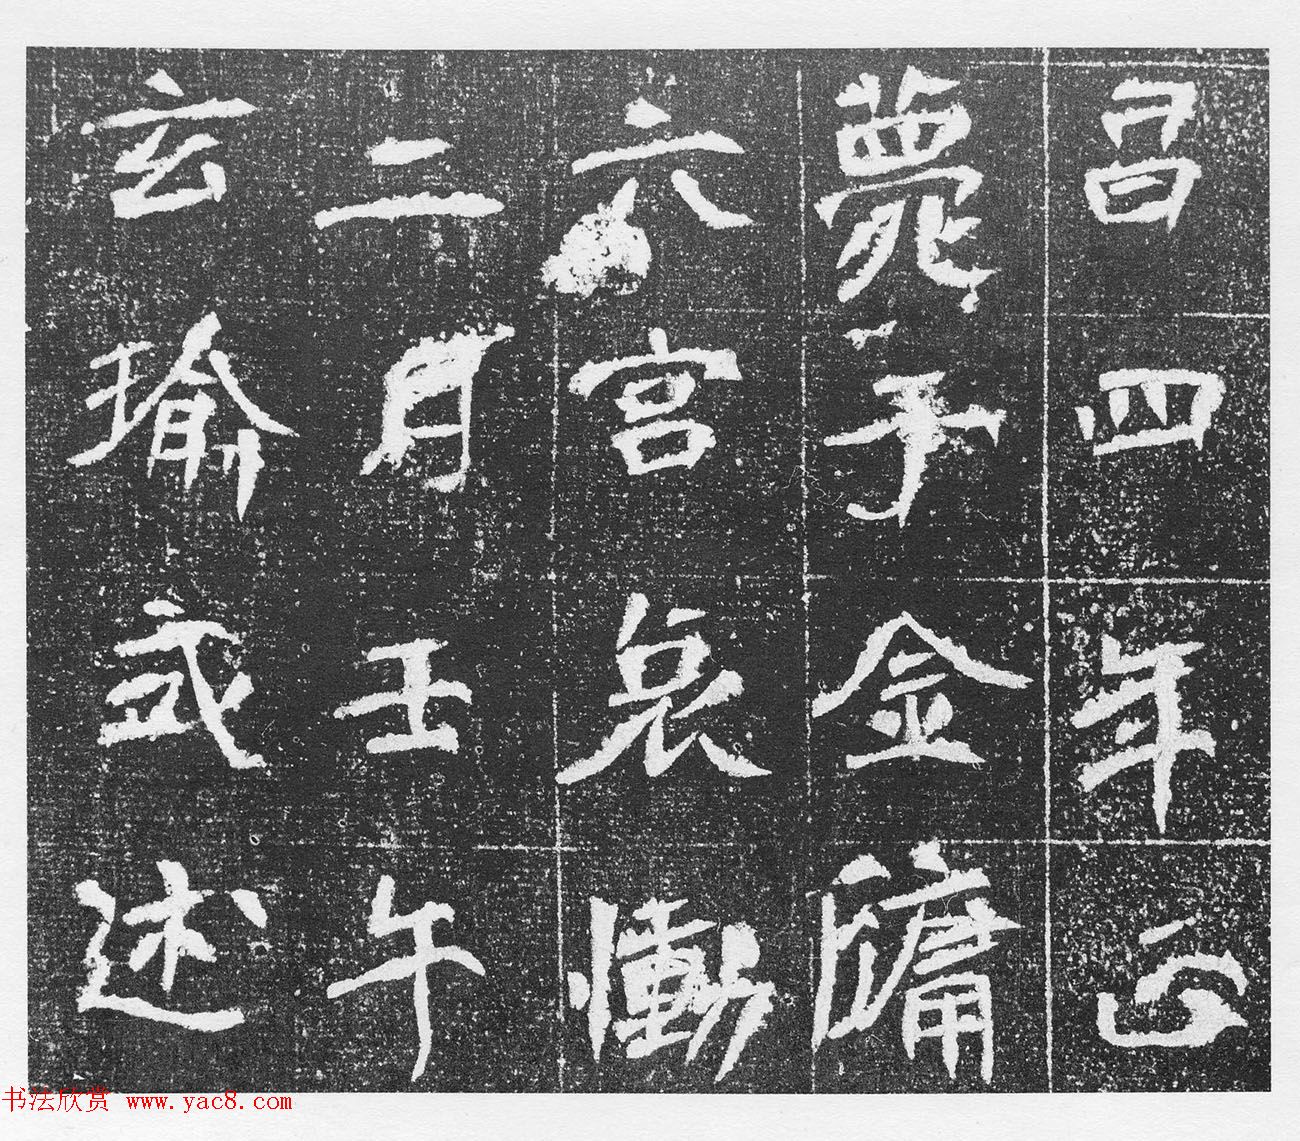 昌四年正
薨于金墉
六宮哀慟
二月壬午
玄瑜式述
书法欣赏 www.yac8.com